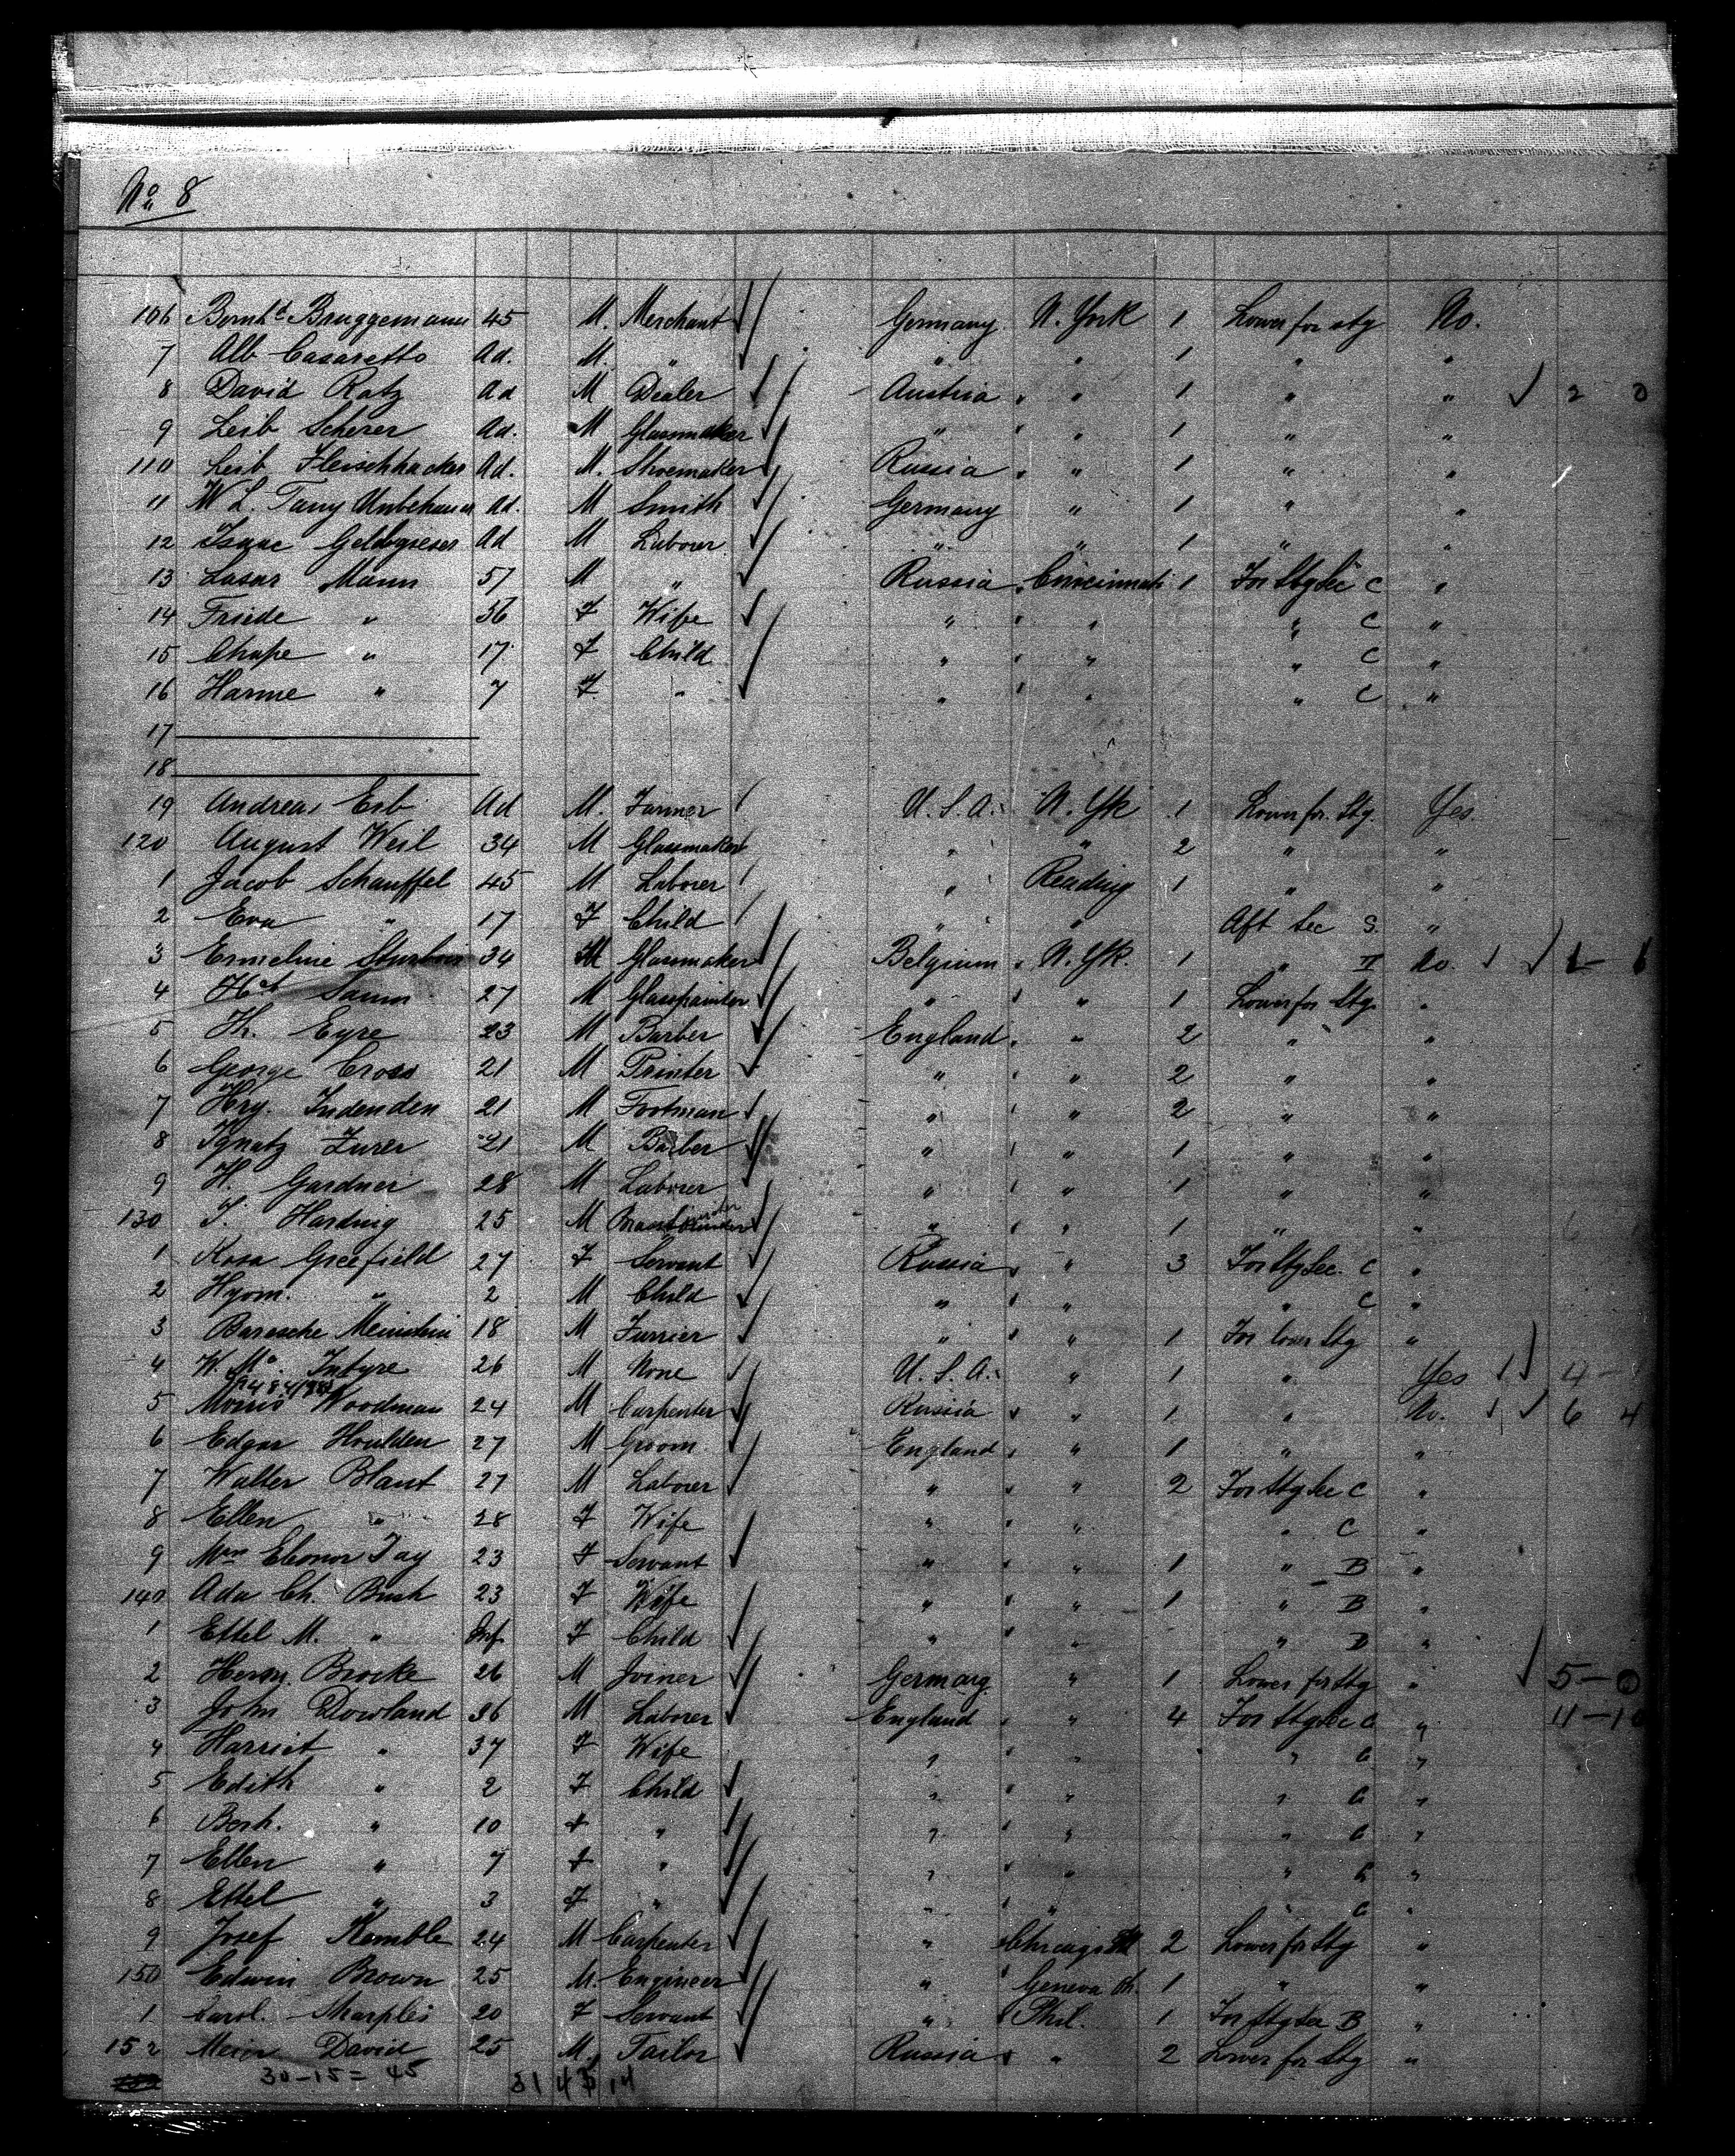 No 8
106 Bernhd Bruggemann 45 M. Merchant Germany N. York 1 Lower for stg No.
7 Alb Casaretto Ad. M. " " " 1 " "
8 David Ratz Ad M Dealer Austria " 1 " " 2 0
9 Leib Scherer Ad. M Glassmaker " " 1 " "
110 Leib Fleischhacker Ad. M. Shoemaker Russia " 1 " "
11 W L. Tany Unbehauen Ad. M Smith Germany " 1 " "
12 Isaac Ad M Laborer " " 1 " "
13 Lasar Mann 57 M " Russia Cincinnati 1 For Stg Sec C "
14 Friede " 56 F Wife " " " C "
15 Chape " 17 F Child " " " C "
16 Hanne " 7 F " " " " C "
17
18
19 Andreas Erb Ad M. Farmer U.S.A. N. Yk 1 Lower for. Stg. Yes.
120 August Weil 34 M Glassmaker " " 2 " "
1 Jacob Schauffel 45 M Laborer " Reading 1 " "
2 Eva " 17 F Child " " Aft Sec S. "
3 Ermeline 34 M Glassmaker Belgium N. Yk. 1 " II No.
4 Hct Saun 27 M Glasspainter " " 1 Lower for Stg. "
5 Th. Eyre 23 M Barber England " 2 " "
6 George Cross 21 M Printer " " 2 " "
7 Hry. Indenden 21 M Footman " " 2 " "
8 Ignatz Zurer 21 M Barber " " 1 " "
9 H. Gardner 28 M Laborer " " 1 " "
130 T. Harding 25 M " " 1 " "
1 Rosa Greefield 27 F Servant Russia " 3 For Stg Sec. C "
2 Hyom. " 2 M Child " " " C "
3 Baresche Meinstein 18 M Furrier " " 1 For lower Stg "
4 W. Mc. Intyre 26 M None U.S.A. " 1 " Yes 4 -
5 Morris Woodman 24 M Carpenter Russia " 1 " No. 6 4
6 Edgar Houlden 27 M Groom England " 1 " "
7 Walter Blant 27 M Laborer " " 2 For Stg Sec C "
8 Ellen " 28 F Wife " " " C "
9 Mrs Eleonor Jay 23 F Servant " " 1 " B "
140 Ada Ch. Bush 23 F Wife " " 1 " B "
1 Ettel M. " Inf F Child " " " B "
2 Herm. Brocke 26 M Joiner Germany " 1 Lower for Stg " 5 - 0
3 John Dowland 36 M Laborer England " 4 For Stg Sec C " 11 - 10
4 Harriet " 37 F Wife " " " C "
5 Edith " 2 F Child " " " C "
6 Berh. " 10 F " " " " C "
7 Ellen " 7 F " " " " C "
8 Ettel " 3 F " " " " C "
9 Josef Kemble 24 M Carpenter " Chicago Ill 2 Lower for Stg "
150 Edwin Brown 25 M. Engineer " Geneva Oh. 1 " "
1 Carol. Sharples 20 F Servant " Phil. 1 For Stg Sec B "
152 Meier David 25 M. Tailor Russia " 2 Lower for Stg "
30 - 15 = 45